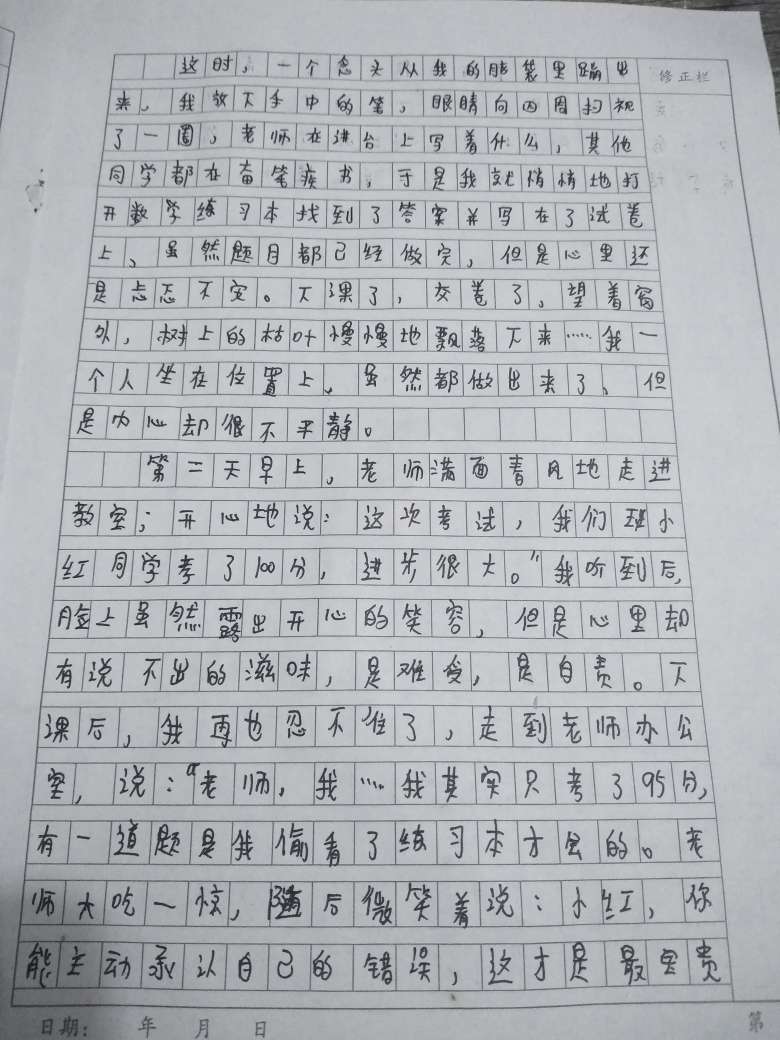 修正栏
这时,一个念头从我的脑袋里蹦出
来,我放下手中的笔,眼睛向四周扫视
了一圈,老师在讲台上写着什么,其他
同学都在奋笔疾书,于是我就悄悄地打
开数学练习本找到了答案并写在了试卷
上、虽然题目都已经做完,但是心里还
是忐忑不安。下课了,交卷了,望着窗
外,树上的枯叶慢慢地飘落下来……我一
个人坐在位置上,虽然都做出来了、但
是内心却很不平静。
第二天早上,老师满面春风地走进
教室;开心地说:这次考试,我们班小
红同学考了100分,进步很大。"我听到后,
脸上虽然露出开心的笑容,但是心里却
有说不出的滋味,是难受,是自责。下
课后,我再也忍不住了,走到老师办公
室,说:"老师,我……我其实只考了95分,
有一道题是我偷看了练习本才会的。老
师大吃一惊,随后微笑着说:小红,你
能主动承认自己的错误,这才是最宝贵
日期: 年 月 日
第